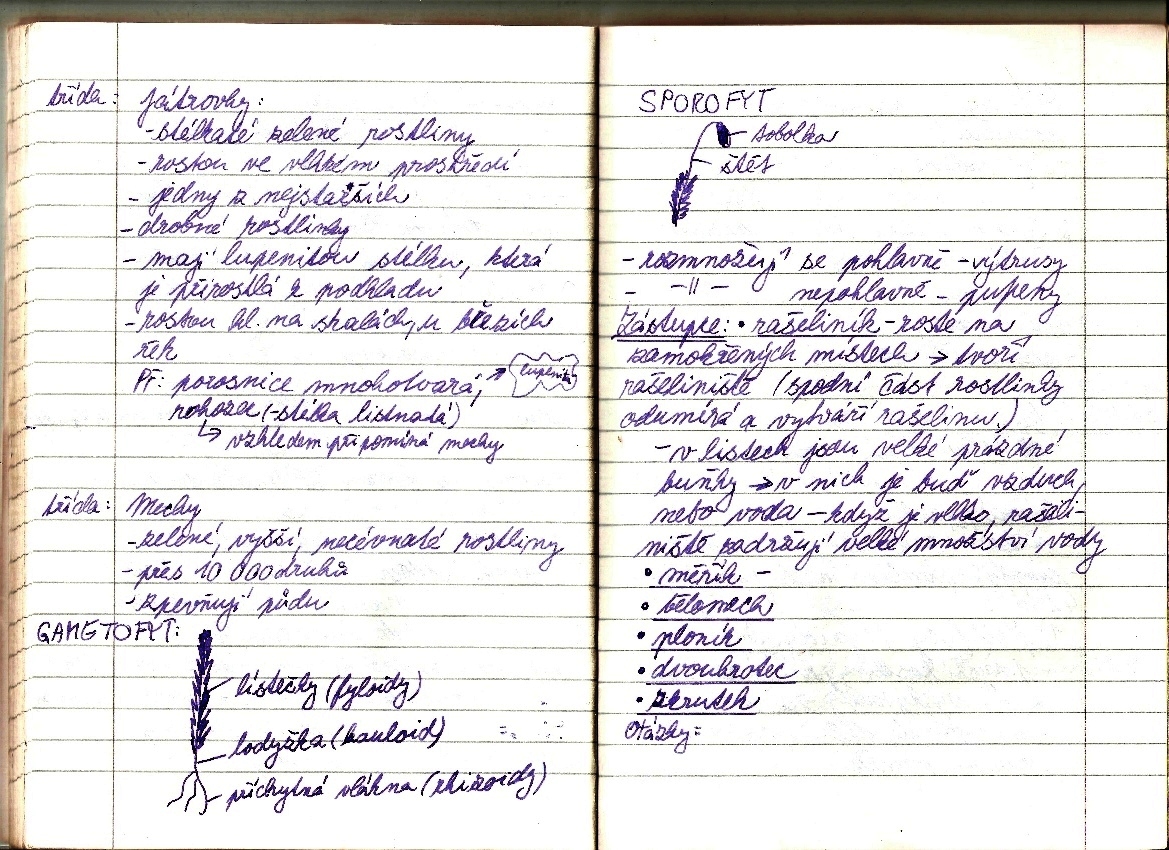 třída: Játrovky:
- stélkaté zelené rostliny
- rostou ve vlhkém prostředí
- jedny z nejstarších
- drobné rostlinky
- mají lupenitou stélku, která
je přirostlá k podkladu
- rostou hl. na skalách, u březích
řek
Př: porosnice mnohotvará, lupenitá
rohozec (-stélka listnatá)
↳ vzhledem připomíná mechy
třída: Mechy
- zelené, vyšší, necévnaté rostliny
- přes 10 000 druhů
- zpevňují půdu
GAMETOFYT:
lístečky (fyloidy)
lodyžka (kauloid)
příchytná vlákna (rhizoidy)
SPOROFYT
tobolka
štět
- rozmnožují se pohlavně - výtrusy
- -||- nepohlavně - pupeny
Zástupce: • rašeliník - roste na
zamokřených místech → tvoří
rašeliniště (spodní část rostlinky
odumírá a vytváří rašelinu.)
- v listech jsou velké prázdné
buňky → v nich je buď vzduch,
nebo voda - když je vlhko, rašeli-
niště zadržují velké množství vody
• měřík -
• bělomech
• ploník
• dvouhrotec
• zkrutek
Otázky: